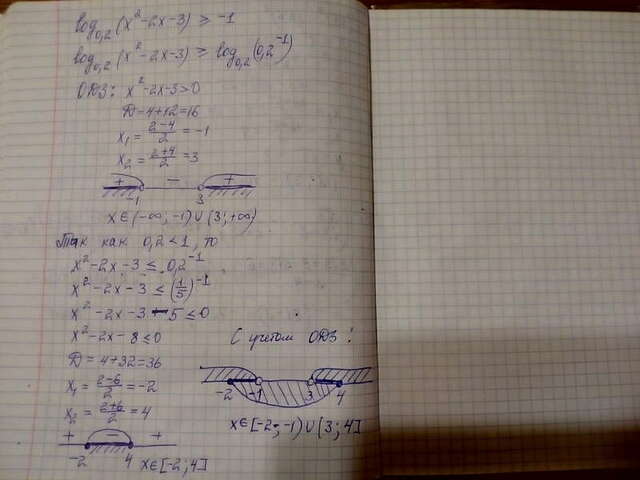 log₀,₂(x²-2x-3) ≥ -1
log₀,₂(x²-2x-3) ≥ log₀,₂(0,2⁻¹)
ОДЗ: x²-2x-3>0
D=4+12=16
x₁ = (2-4)/2 = -1
x₂ = (2+4)/2 = 3
+ − +
-1 3
x∈(-∞;-1)∪(3;+∞)
Так как 0,2<1, то
x²-2x-3 ≤ 0,2⁻¹
x²-2x-3 ≤ (1/5)⁻¹
x²-2x-3-5 ≤ 0
x²-2x-8 ≤ 0
D=4+32=36
x₁ = (2-6)/2 = -2
x₂ = (2+6)/2 = 4
+ − +
-2 4 x∈[-2;4]
С учетом ОДЗ:
-2 -1 3 4
x∈[-2;-1)∪(3;4]